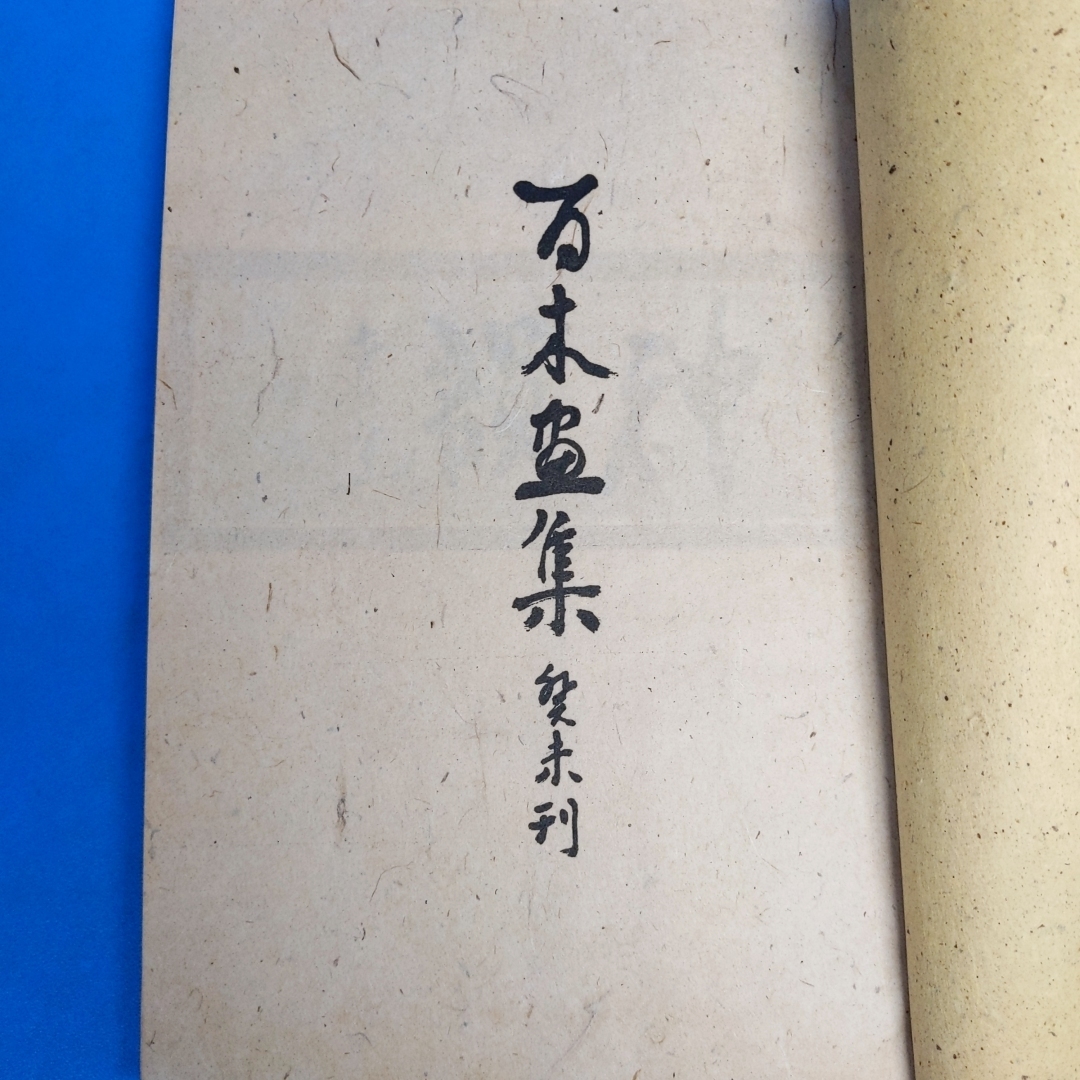 百木画集 癸未刊